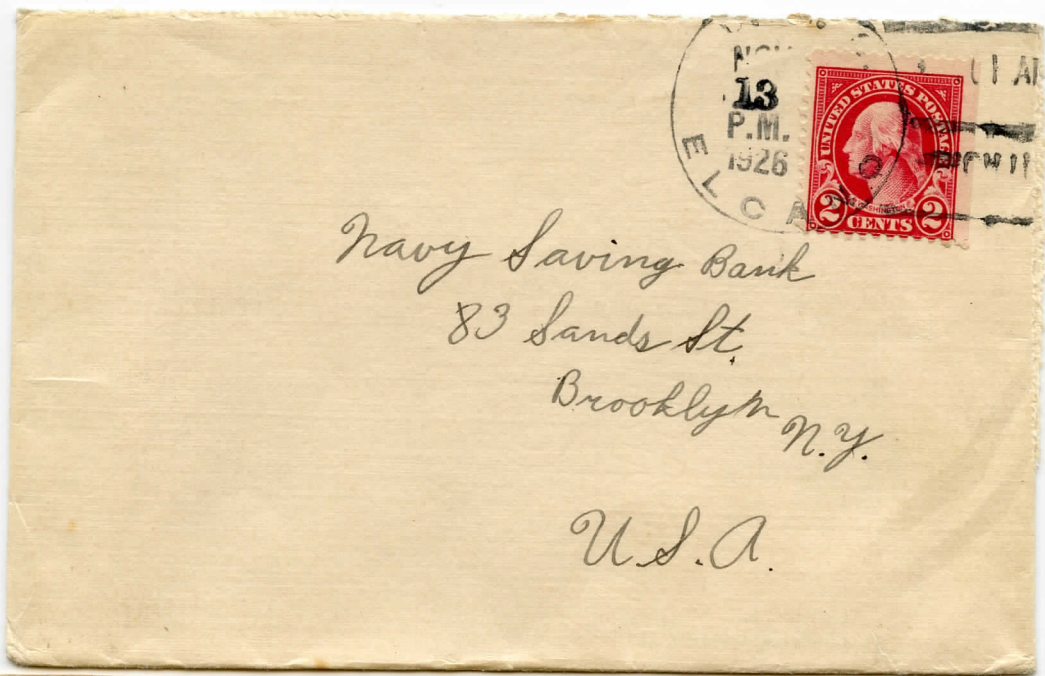 NOV
13
P.M.
1926
ELCA
UNITED STATES POSTAGE
WASHINGTON
2 CENTS 2
Navy Saving Bank
83 Sands St.
Brooklyn
N.Y.
U.S.A.